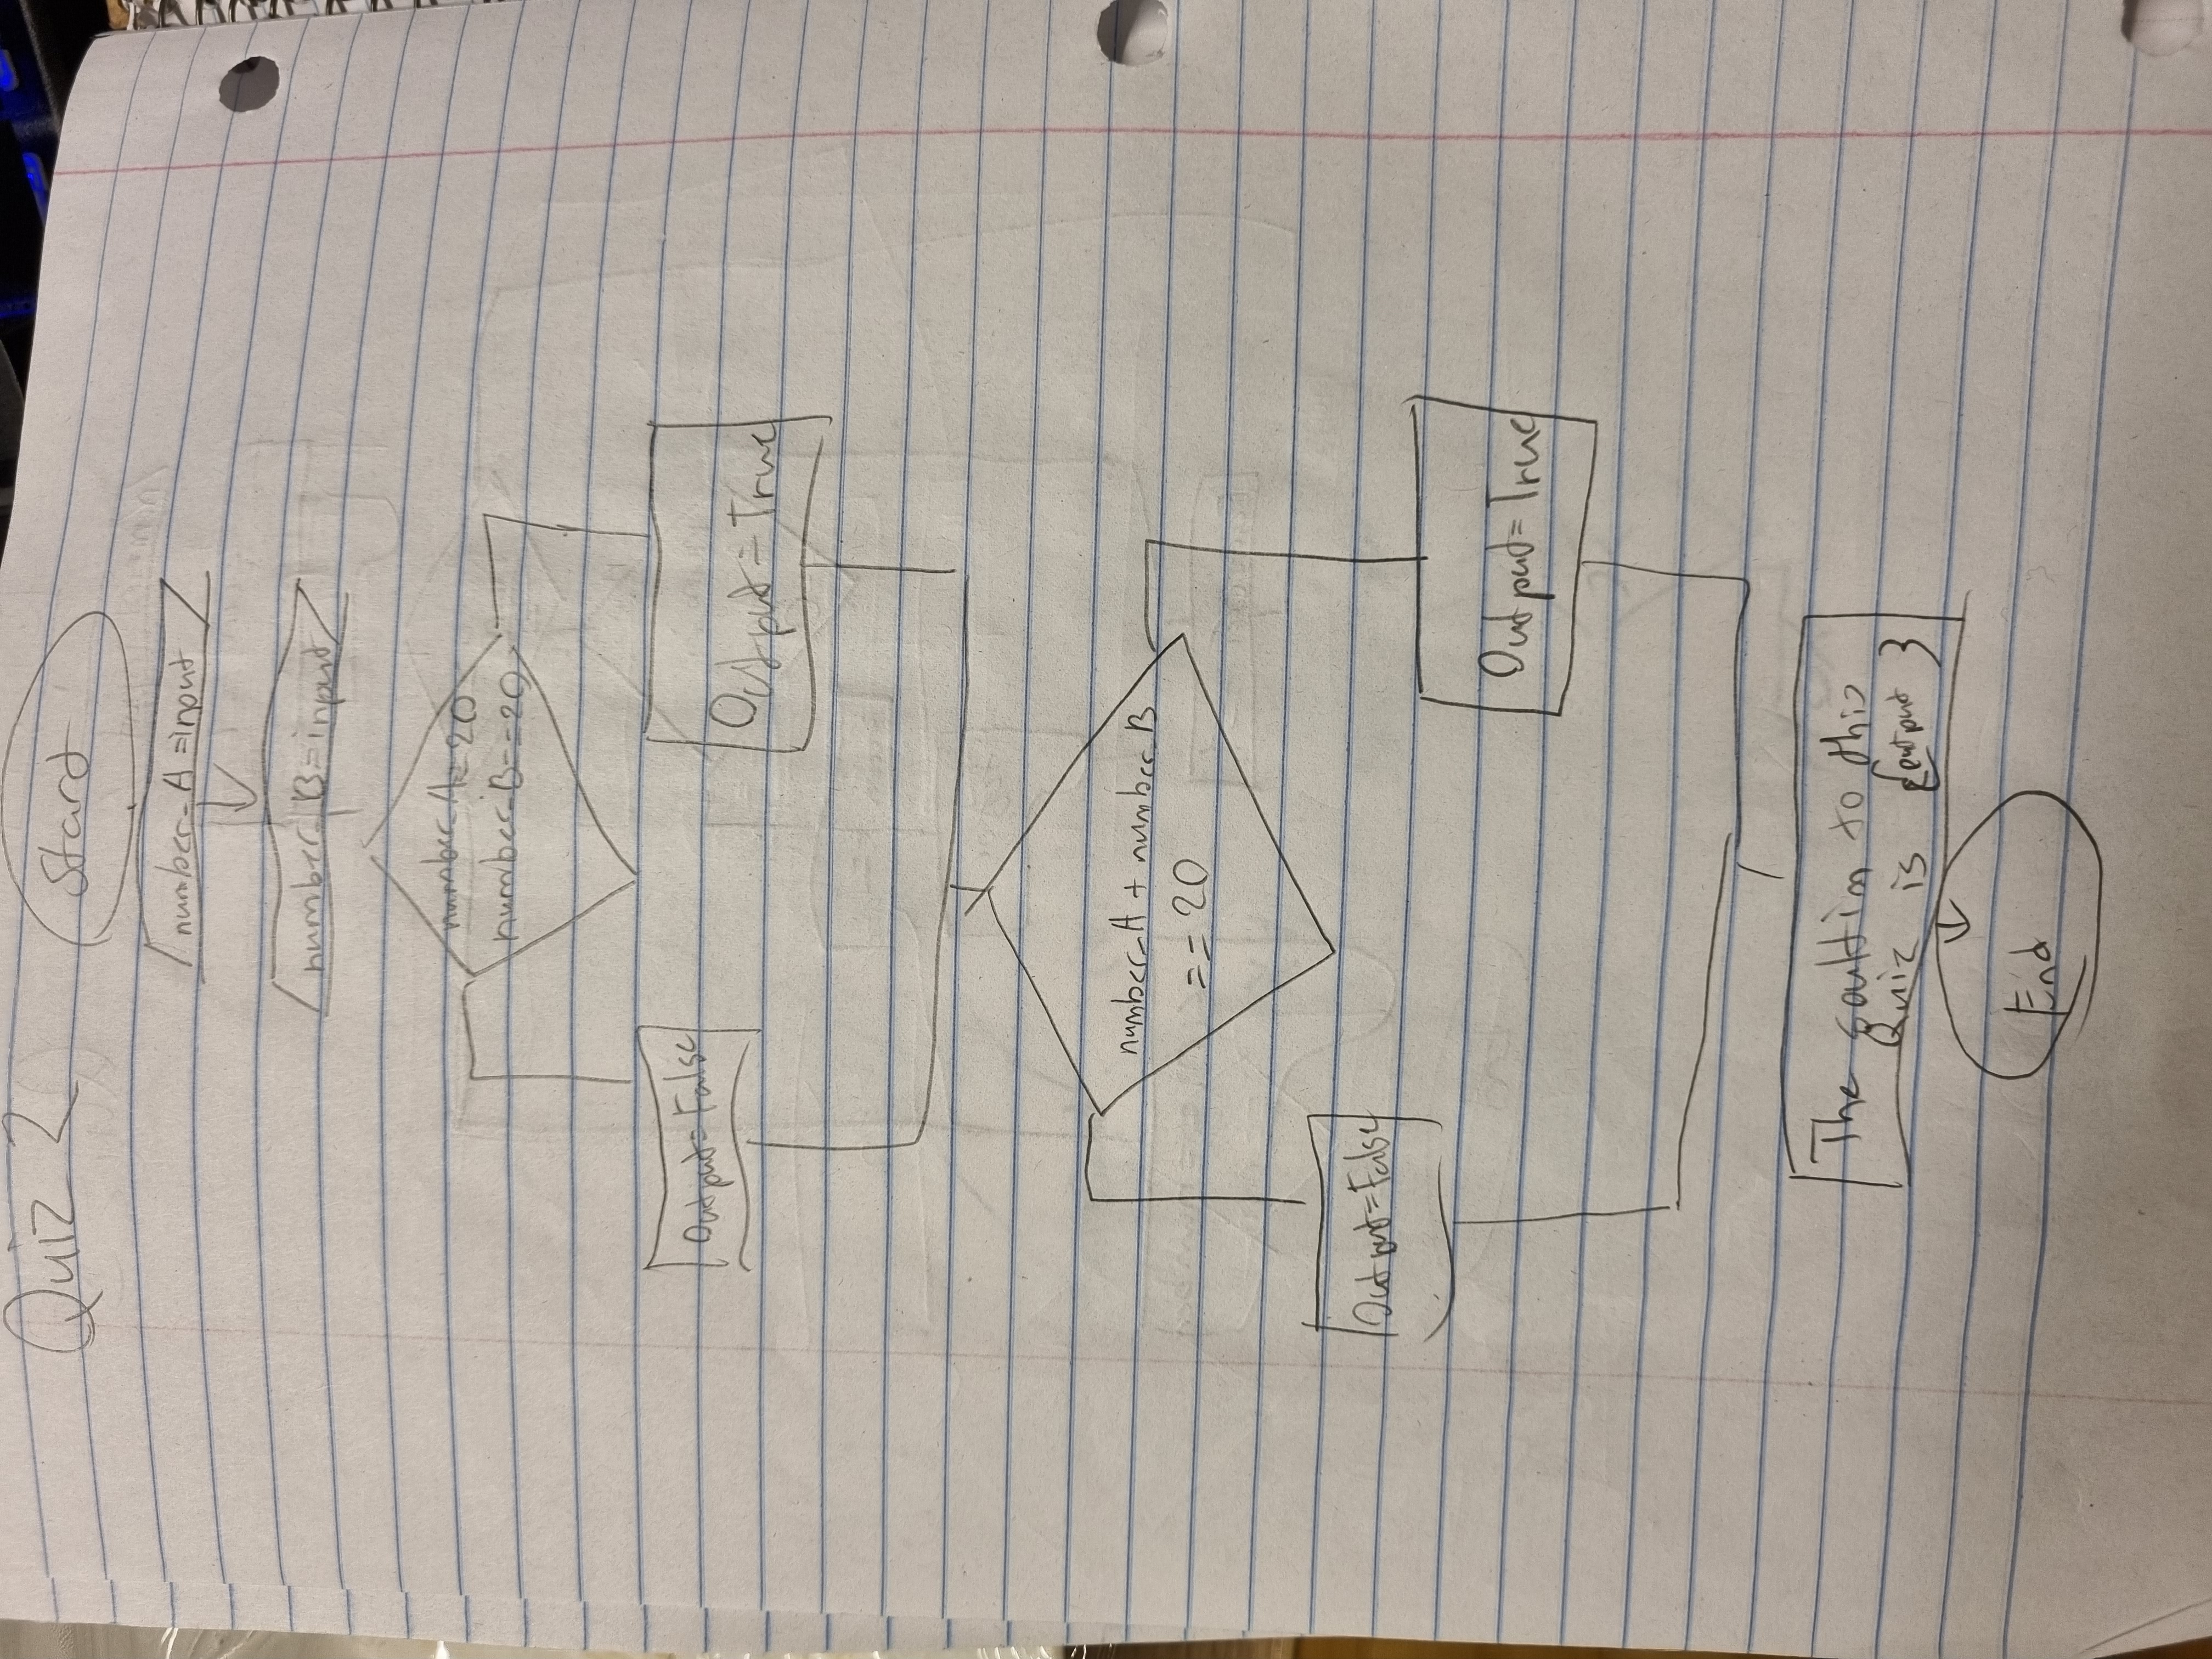 Quiz 2
Start
number_A = input
number_B = input
number_A = 20
number_B == 20
Output = False
Output = True
number_A + number_B
== 20
Output = False
Output = True
The to this
Quiz is {output}
End